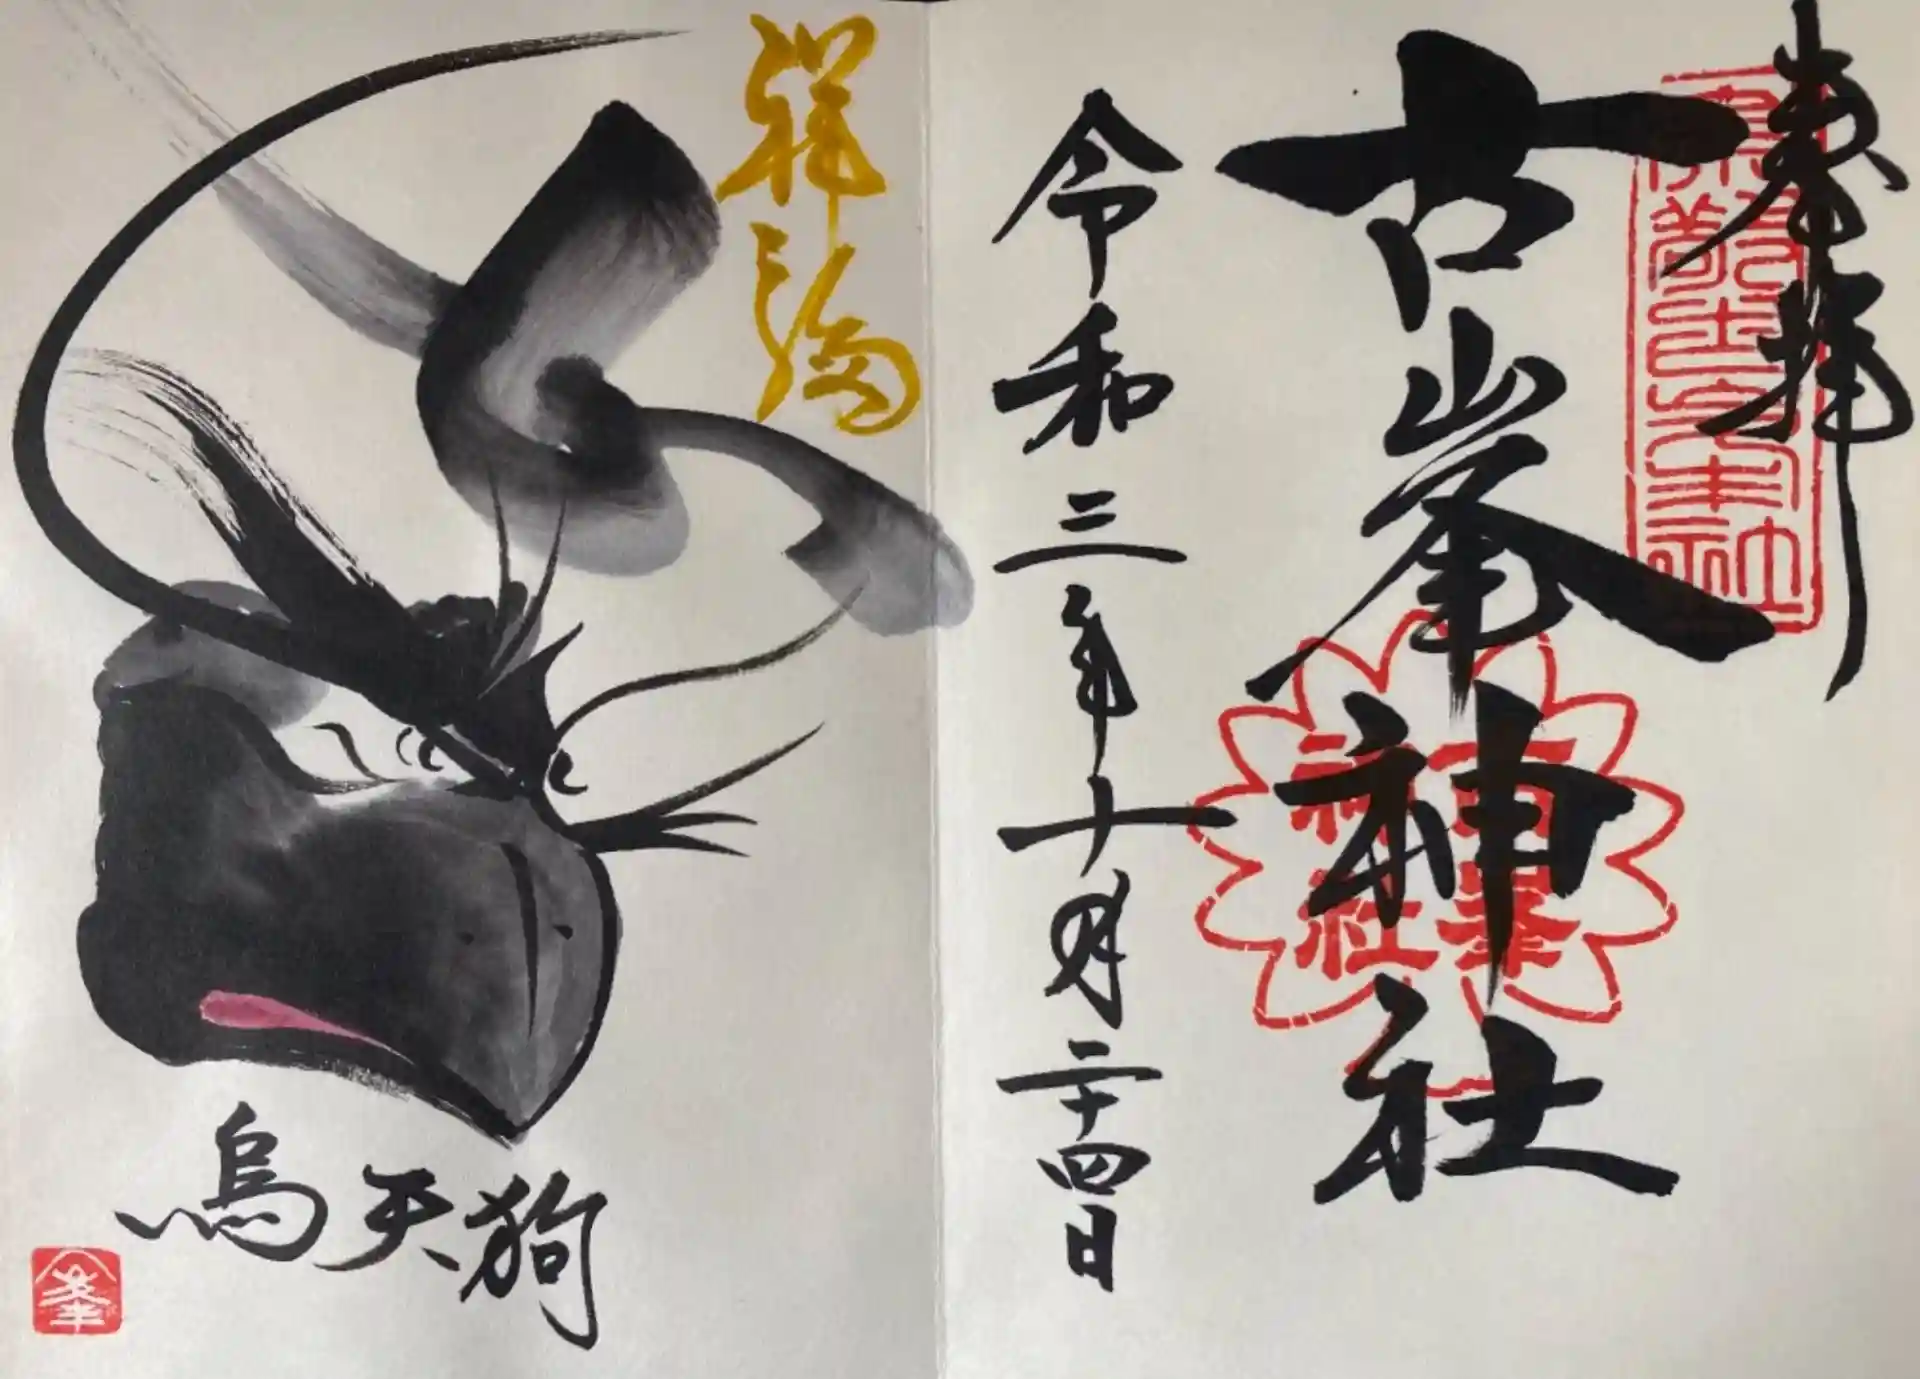 奉拝
古峯神社
令和三年十月二十四日
烏天狗
古峯
神社
峯